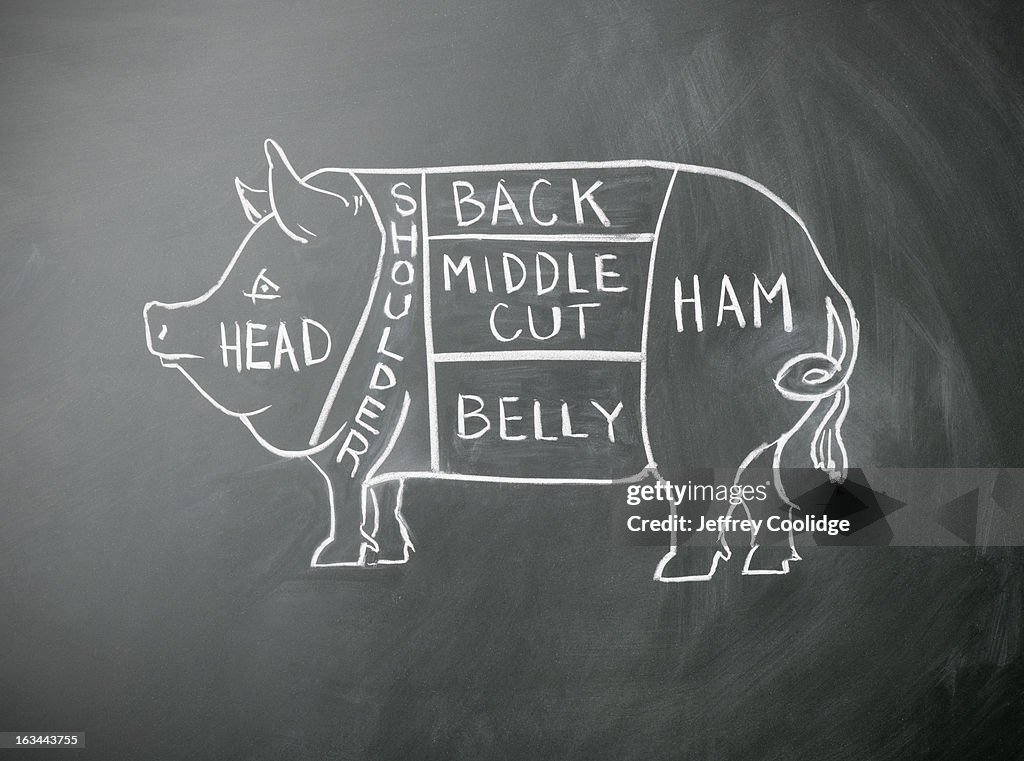 SHOULDER
BACK
MIDDLE
CUT
HAM
HEAD
BELLY
gettyimages®
Credit: Jeffrey Coolidge
163443755